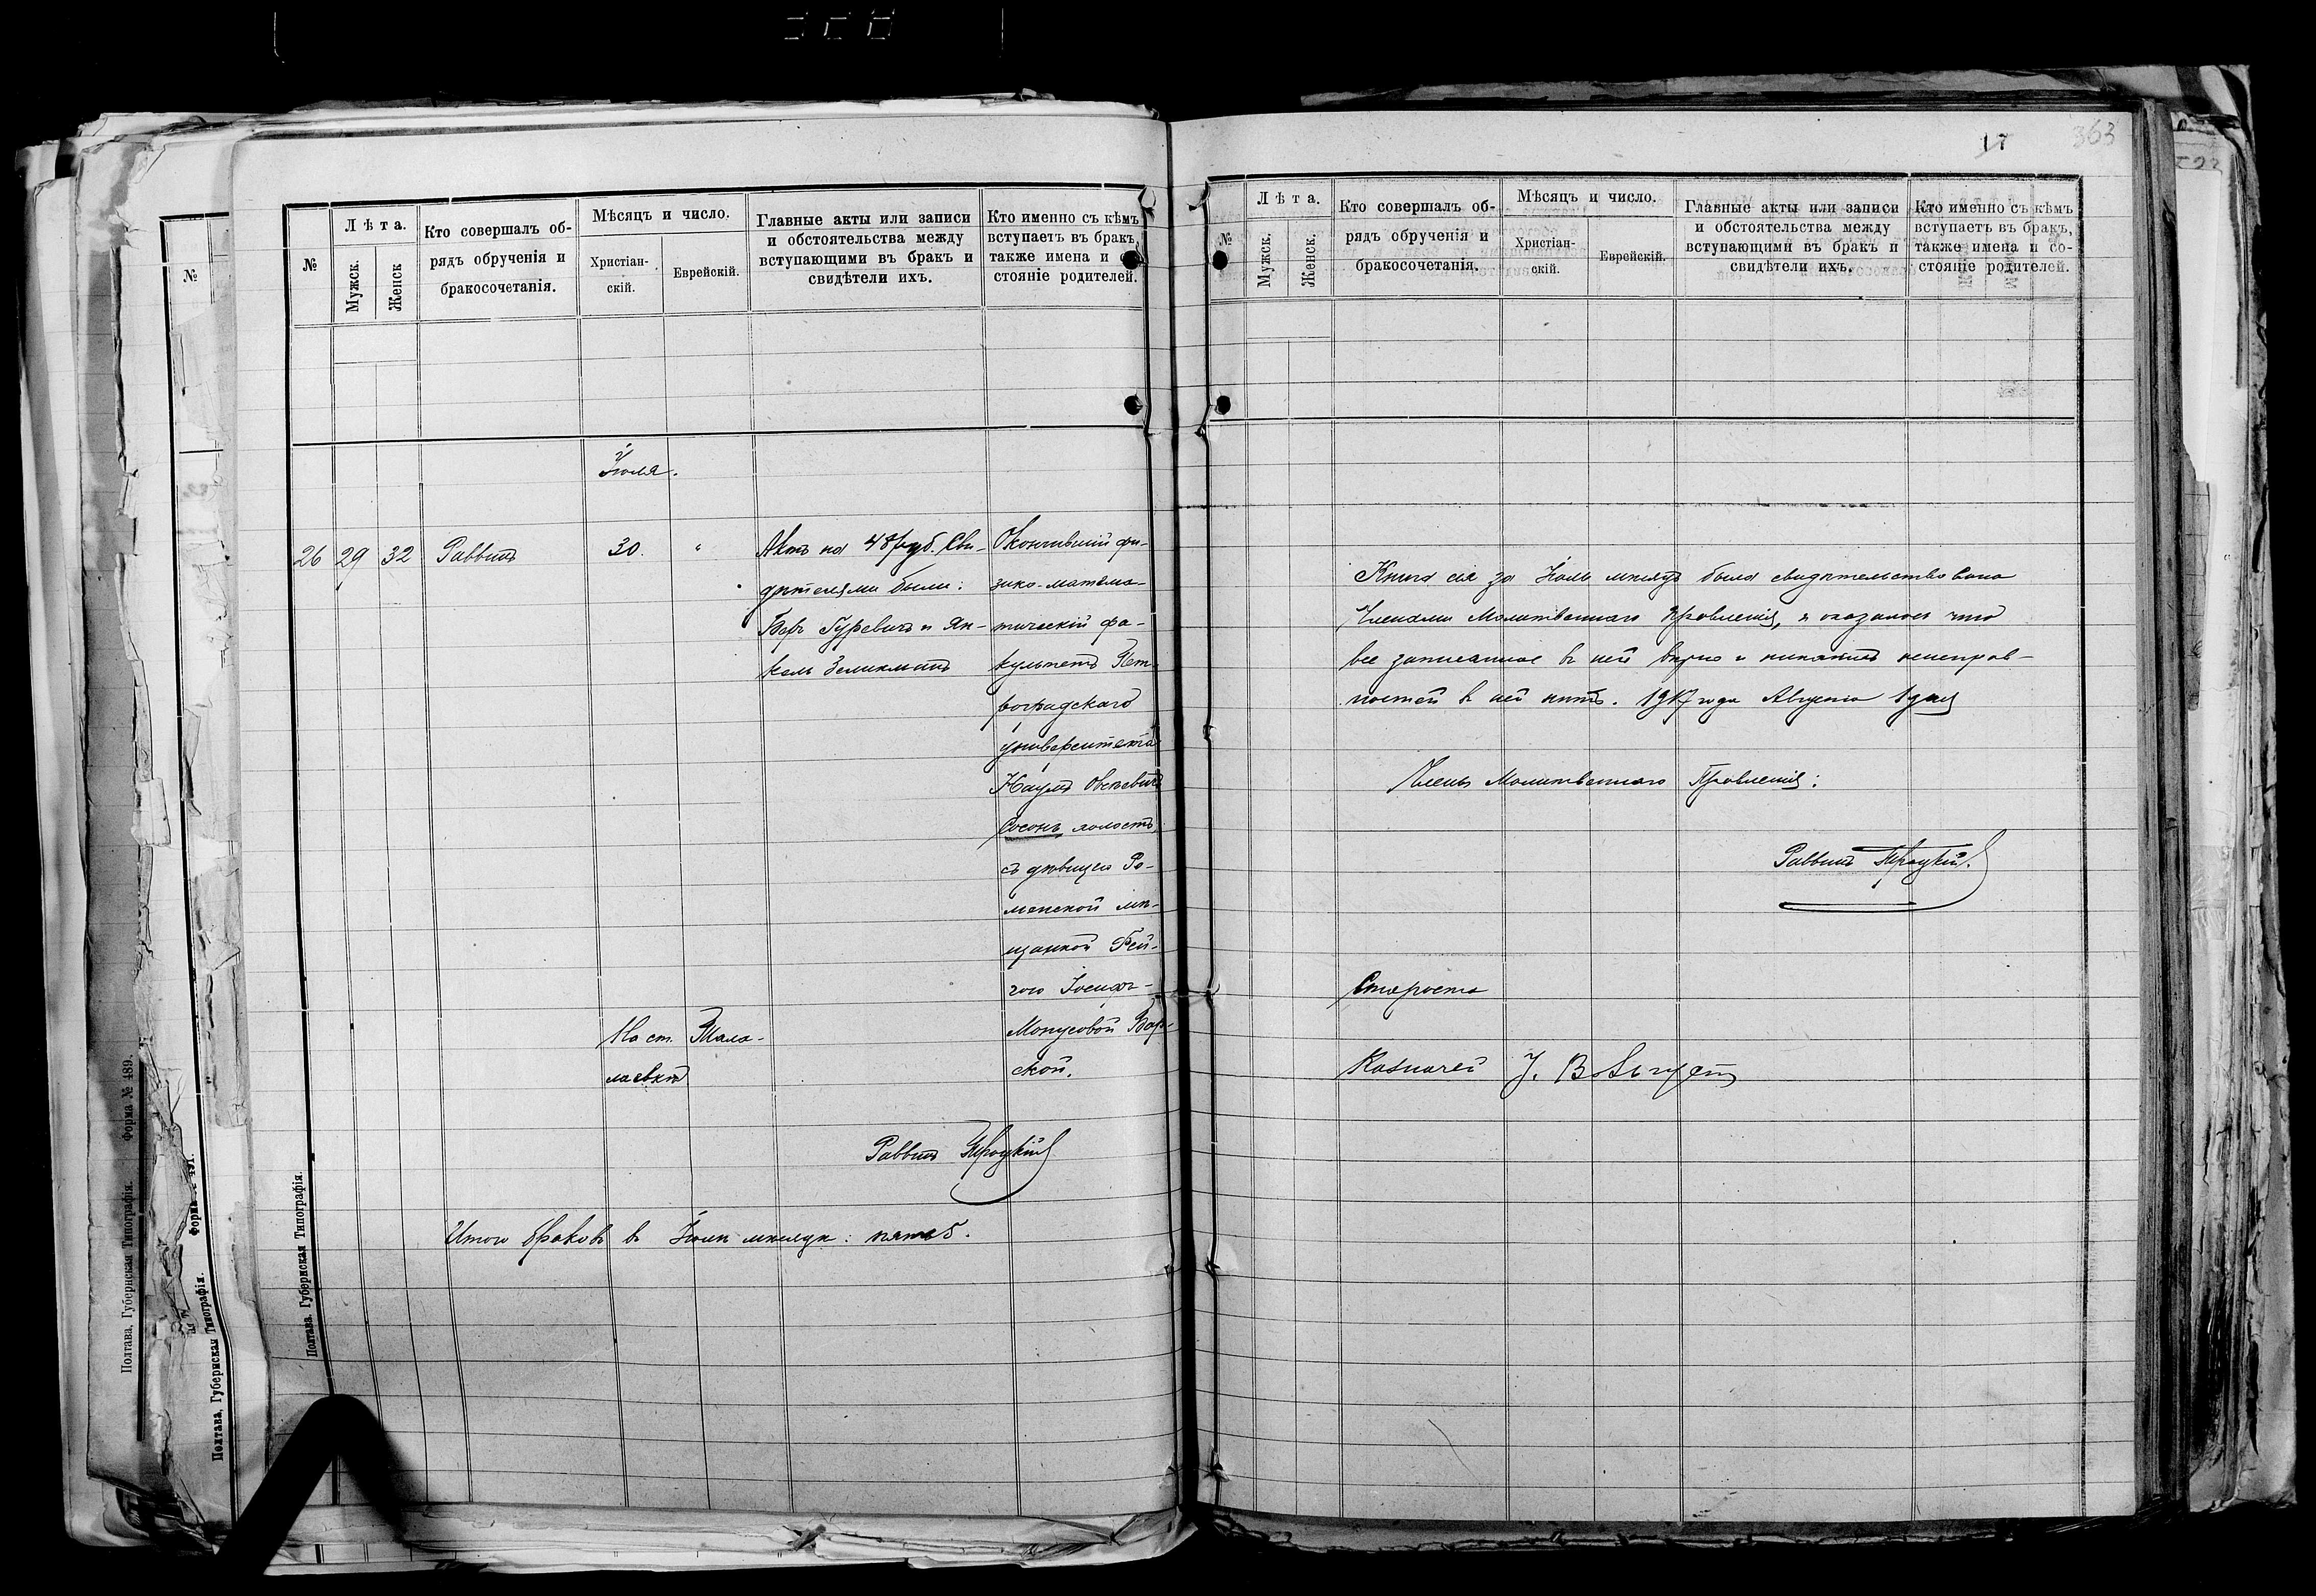 17
363
№
Лѣта.
Мужск.
Женск
Кто совершалъ об-
рядъ обрученія и
бракосочетанія.
Мѣсяцъ и число.
Христіан-
скій.
Еврейскій.
Главные акты или записи
и обстоятельства между
вступающими въ бракъ и
свидѣтели ихъ.
Кто именно съ кѣмъ
вступаетъ въ бракъ,
также имена и со-
стояніе родителей.
Іюля.
26 29 32 Раввинъ 30. "
Актъ на 48 руб. Сви-
дѣтелями были:
Беръ Гуревичъ и Ян-
кель Зеликманъ
Окончившій фи-
зико-матема-
тическій фа-
культетъ Пет-
роградскаго
университета
Наумъ Овсѣевичъ
Сосонъ холостъ
съ дѣвицею Ро-
менской мѣ-
щанкой Рей-
зою Іосифъ-
Монусовой Бар-
ской.
На ст. Тала-
лаевкѣ
Раввинъ
Итого браковъ въ Іюлѣ мѣсяцѣ: пять 5.
№
Лѣта.
Мужск.
Женск.
Кто совершалъ об-
рядъ обрученія и
бракосочетанія.
Мѣсяцъ и число.
Христіан-
скій.
Еврейскій.
Главные акты или записи
и обстоятельства между
вступающими въ бракъ и
свидѣтели ихъ.
Кто именно съ кѣмъ
вступаетъ въ бракъ,
также имена и со-
стояніе родителей.
Книга сія за Іюль мѣсяцъ была свидѣтельствована
Членами Молитвеннаго Правленія, и оказалось что
все записанное въ ней вѣрно и никакихъ неисправ-
ностей въ ней нѣтъ. 1917 года Августа 1 дня
Члены Молитвеннаго Правленія:
Раввинъ
Староста
Казначей
№
Полтава, Губернская Типографія. Форма № 489.
Полтава, Губернская Типографія.
Полтава. Губернская Типографія.